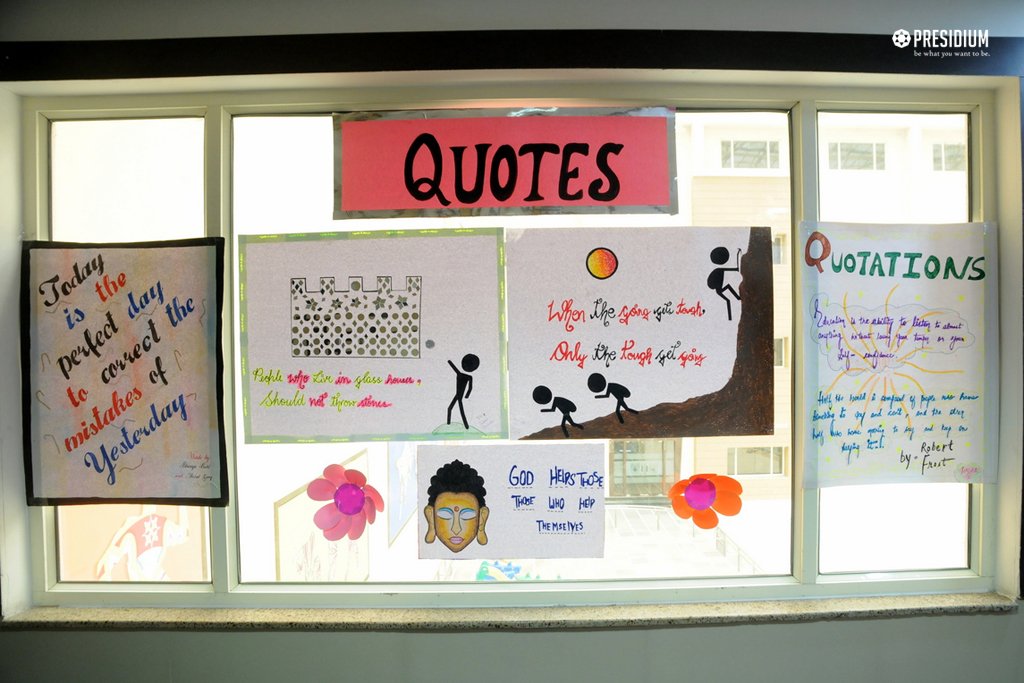 PRESIDIUM
be what you want to be.
QUOTES
Today
is the
perfect day
to correct the
mistakes of
Yesterday
Made by
People who Live in glass houses,
Should not throw stones
When the going gets tough,
Only the tough get going
GOD HELPS THOSE
THOSE WHO HELP
THEMSELVES
QUOTATIONS
Education is the ability to listen to almost
anything without losing your temper or your
self-confidence.
Half the world is composed of people who have
something to say and can't, and the other
half who have nothing to say and keep on
saying it.
by - Robert
Frost